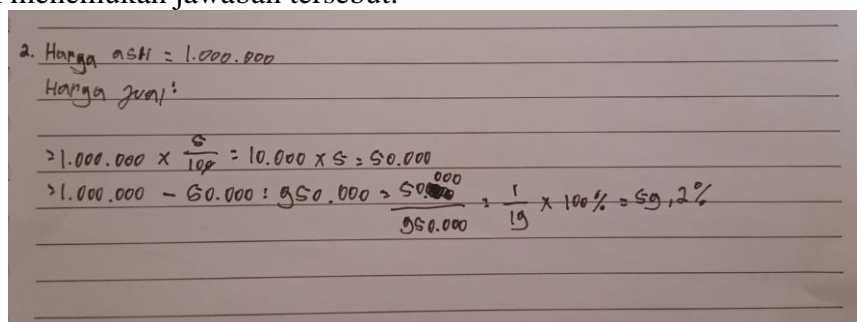 menemukan jawaban tersebut.
2. Harga asli = 1.000.000
Harga jual :
= 1.000.000 × 5/100 = 10.000 × 5 = 50.000
= 1.000.000 - 50.000 : 950.000 = 50.000/950.000 = 1/19 × 100% = 59,2%